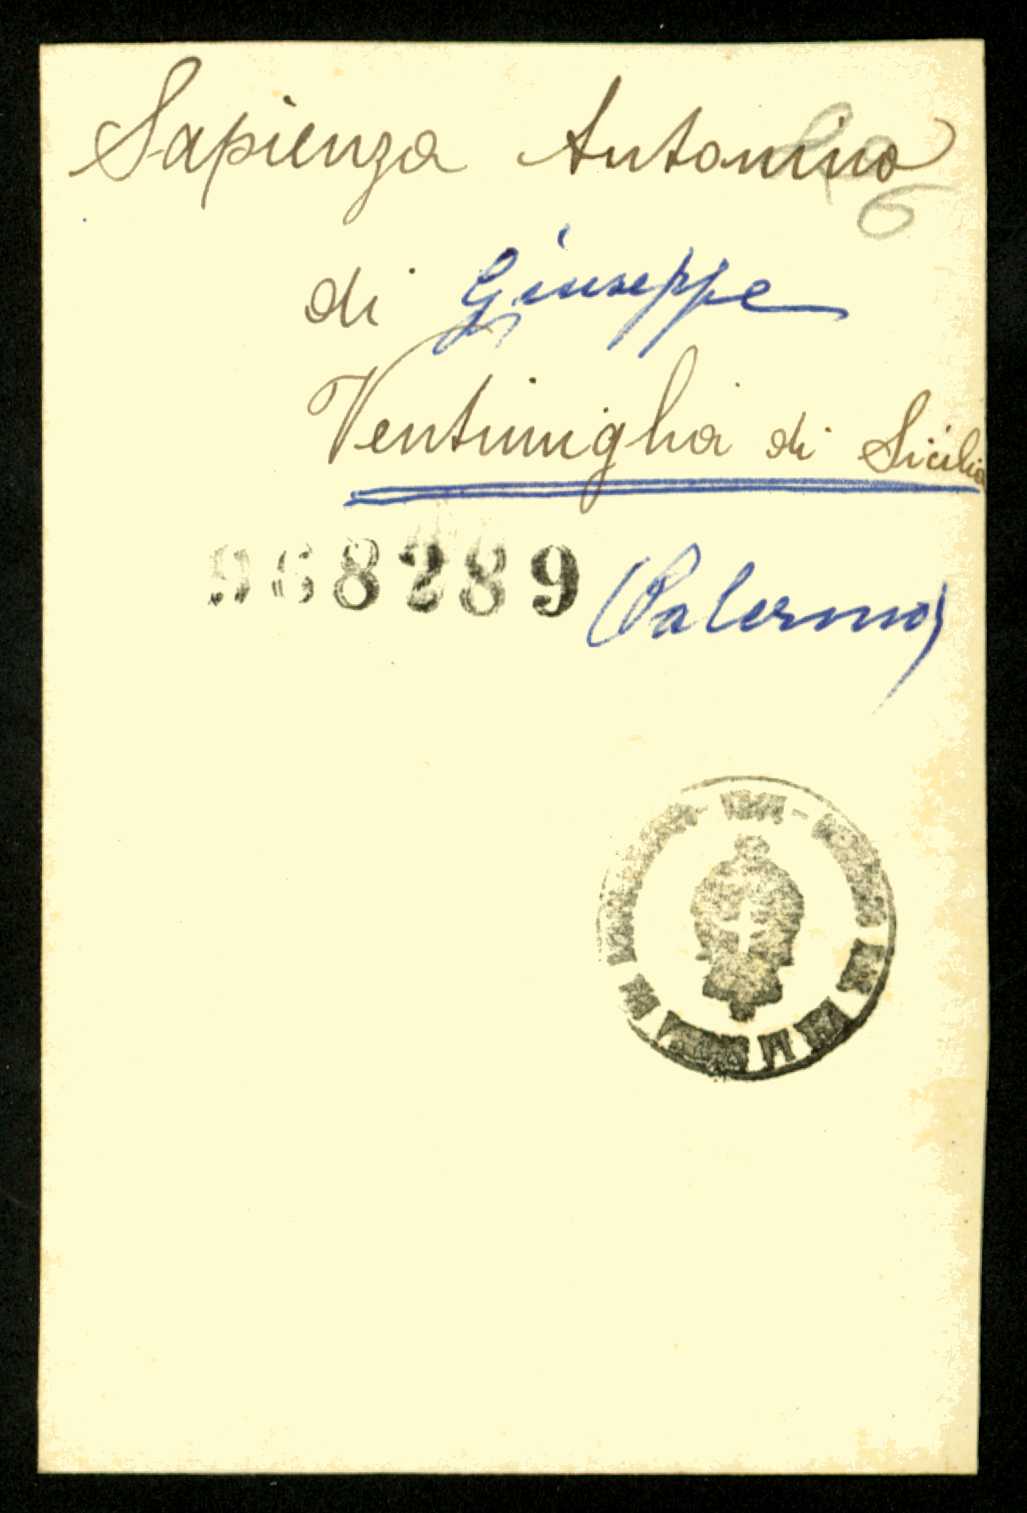 Sapienza Antonino
di Giuseppe
Ventimiglia di Sicilia
968289 (Palermo)